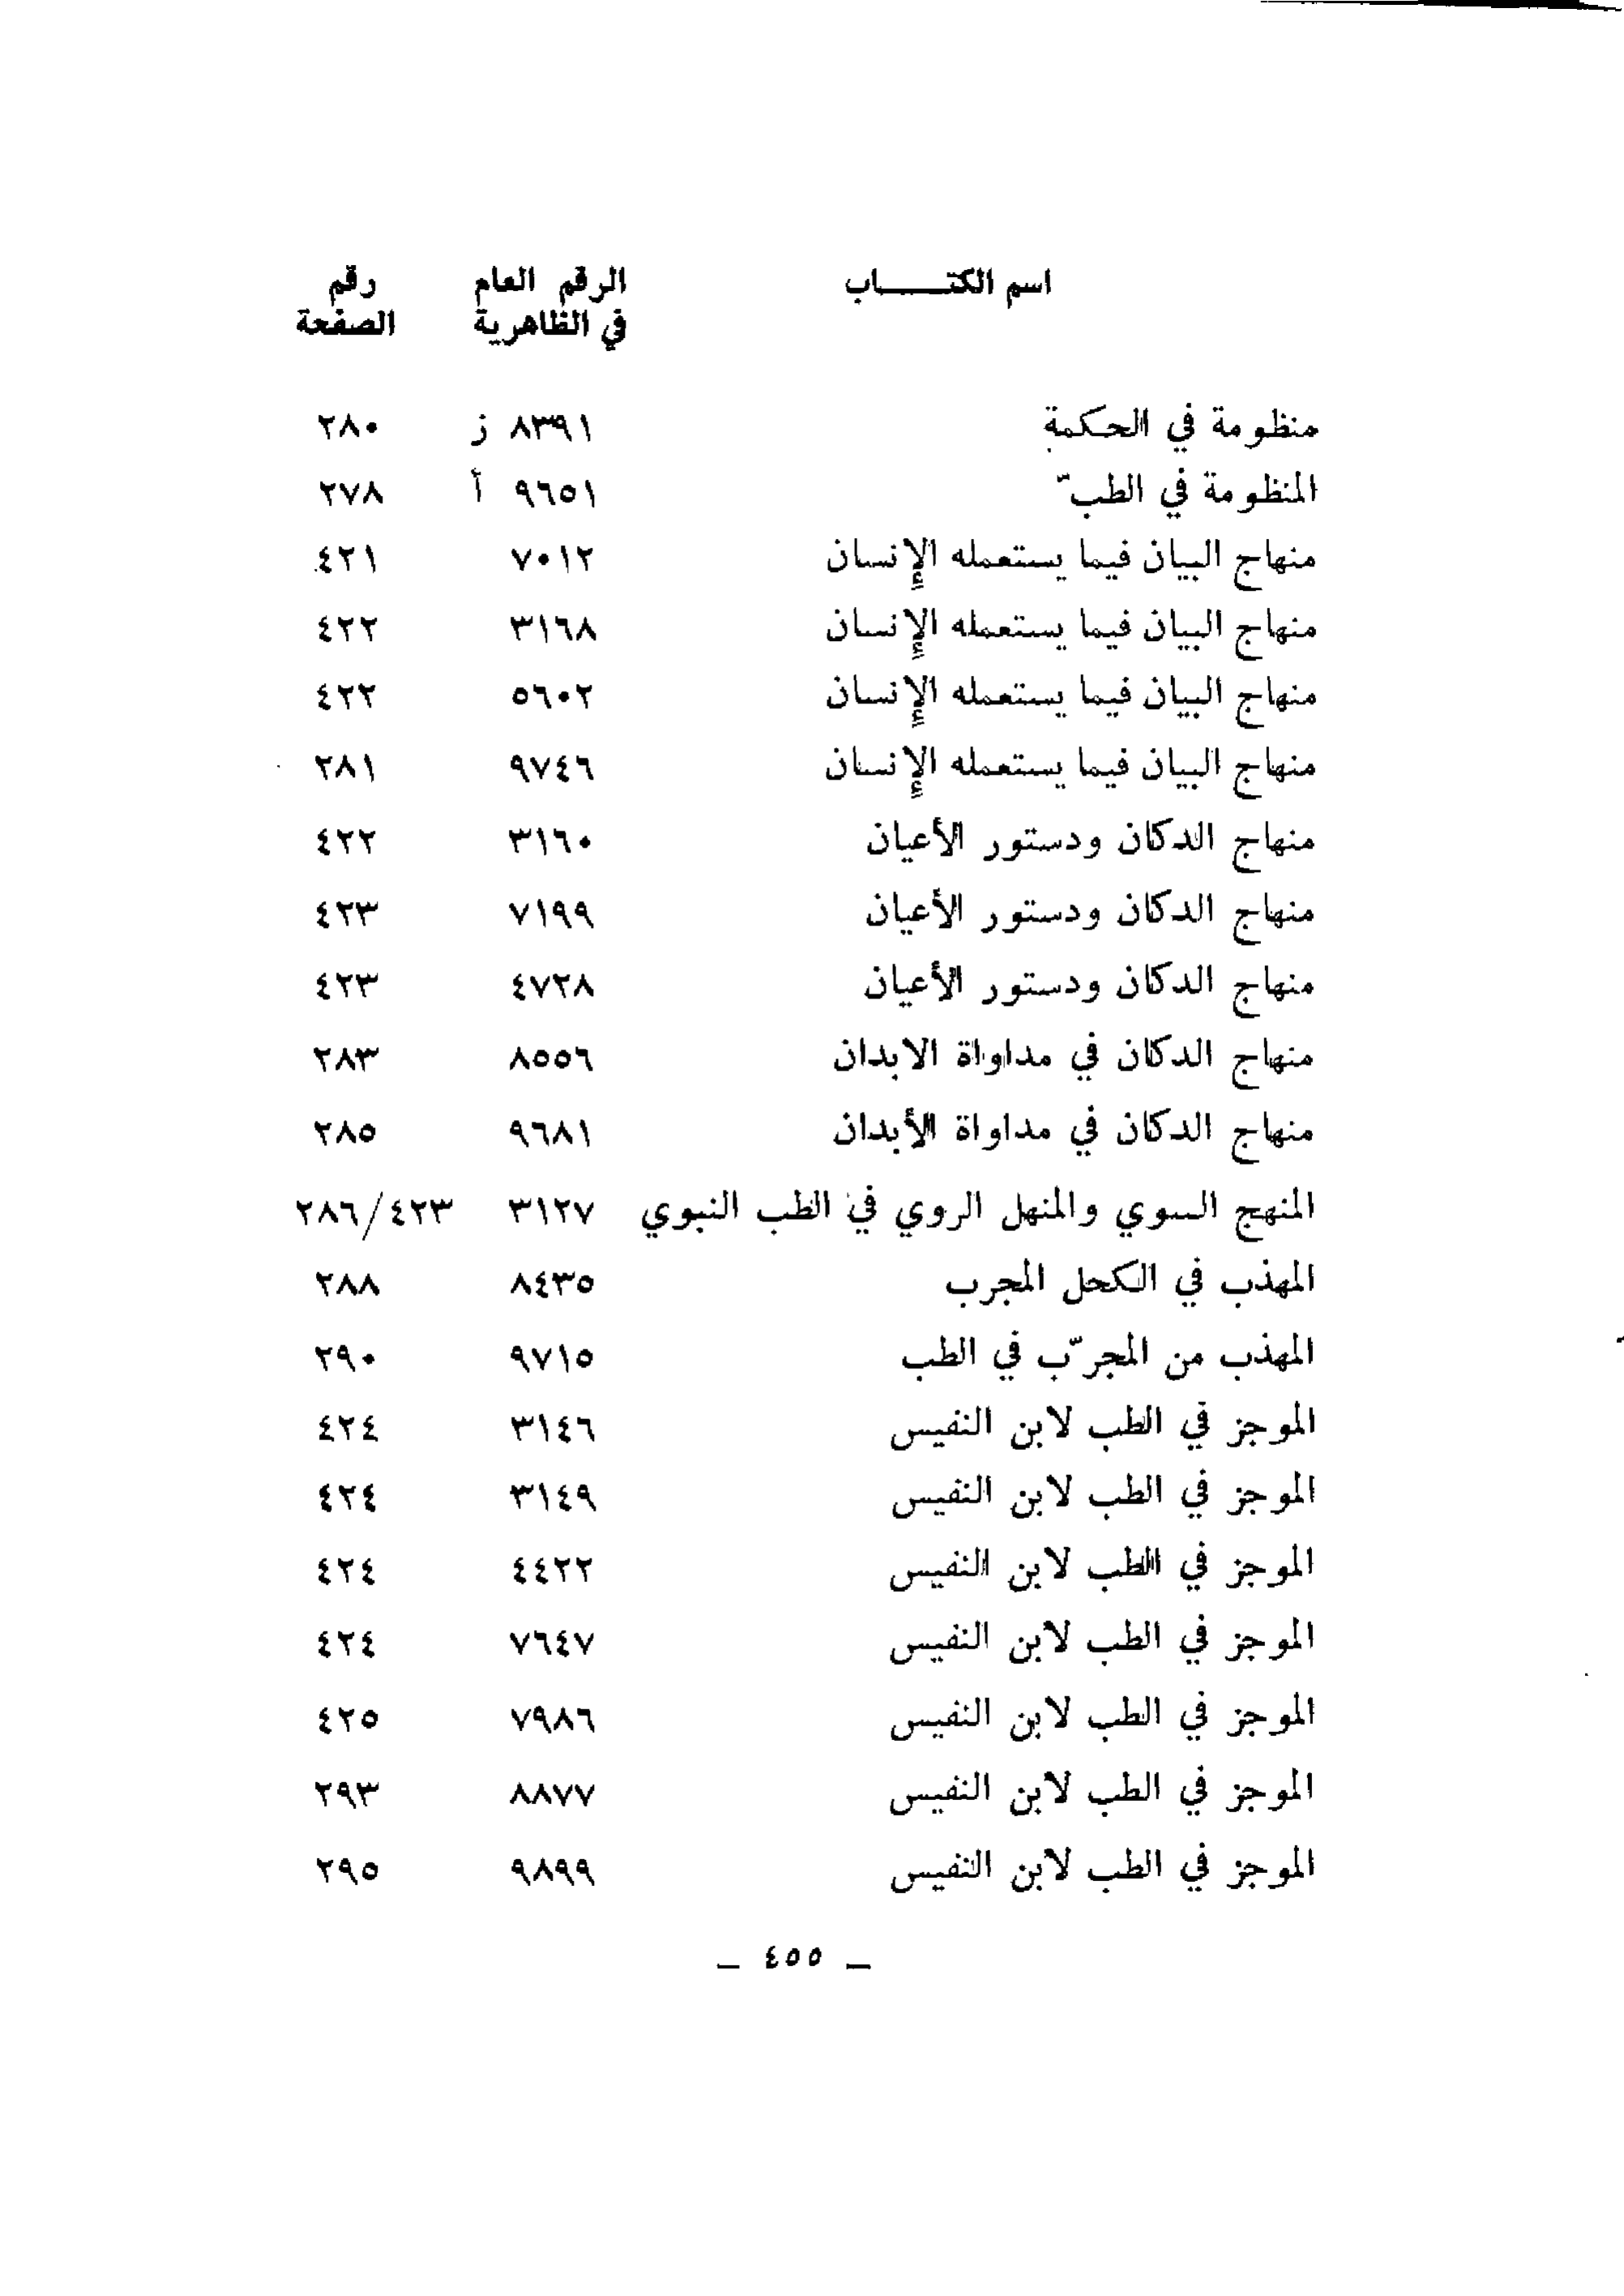 اسم الكتـــــاب الرقم العام رقم
في الظاهرية الصفحة
منظومة في الحكمة ٨٣٩١ ز ٢٨٠
المنظومة في الطبّ ٩٦٥١ أ ٢٧٨
منهاج البيان فيما يستعمله الإنسان ٧٠١٢ ٤٢١
منهاج البيان فيما يستعمله الإنسان ٣١٦٨ ٤٢٢
منهاج البيان فيما يستعمله الإنسان ٥٦٠٢ ٤٢٢
منهاج البيان فيما يستعمله الإنسان ٩٧٤٦ ٢٨١
منهاج الدكان ودستور الأعيان ٣١٦٠ ٤٢٢
منهاج الدكان ودستور الأعيان ٧١٩٩ ٤٢٣
منهاج الدكان ودستور الأعيان ٤٧٢٨ ٤٢٣
منهاج الدكان في مداواة الابدان ٨٥٥٦ ٢٨٣
منهاج الدكان في مداواة الأبدان ٩٦٨١ ٢٨٥
المنهج السوي والمنهل الروي في الطب النبوي ٣١٢٧ ٢٨٦/٤٢٣
المهذب في الكحل المجرب ٨٤٣٥ ٢٨٨
المهذب من المجرّب في الطب ٩٧١٥ ٢٩٠
الموجز في الطب لابن النفيس ٣١٤٦ ٤٢٤
الموجز في الطب لابن النفيس ٣١٤٩ ٤٢٤
الموجز في الطب لابن النفيس ٤٤٢٢ ٤٢٤
الموجز في الطب لابن النفيس ٧٦٤٧ ٤٢٤
الموجز في الطب لابن النفيس ٧٩٨٦ ٤٢٥
الموجز في الطب لابن النفيس ٨٨٧٧ ٢٩٣
الموجز في الطب لابن النفيس ٩٨٩٩ ٢٩٥
_ ٤٥٥ _